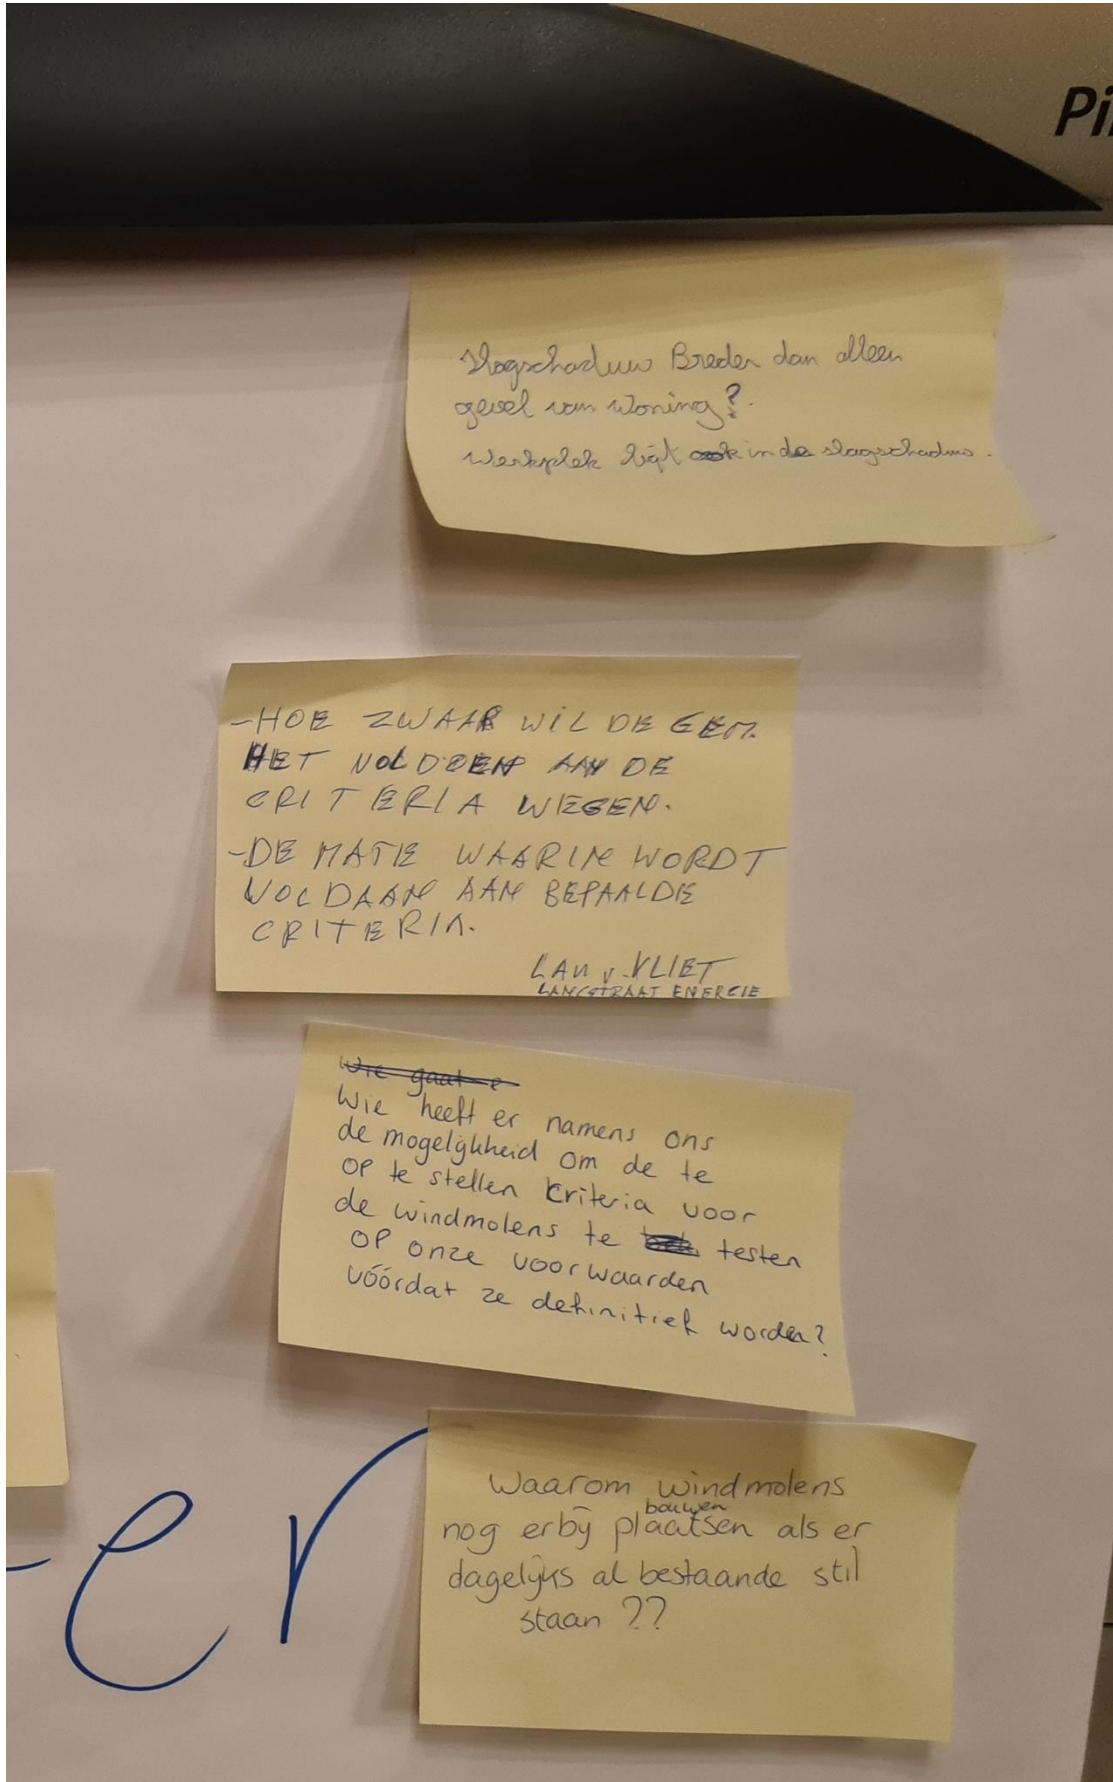 Pi
Slagschaduw Breder dan alleen
gevel van Woning?
Werkplek ligt ook in de slagschaduw.
-HOE ZWAAR WIL DE GEM.
HET VOLDOEN AAN DE
CRITERIA WEGEN.
-DE MATE WAARIN WORDT
VOLDAAN AAN BEPAALDE
CRITERIA.
LAU v. VLIET
LANGSTRAAT ENERGIE
Wie gaat e
Wie heeft er namens ons
de mogelijkheid om de te
op te stellen criteria voor
de windmolens te testen
op onze voorwaarden
vóórdat ze definitief worden?
Waarom windmolens
bouwen
nog erbij plaatsen als er
dagelijks al bestaande stil
staan ??
er